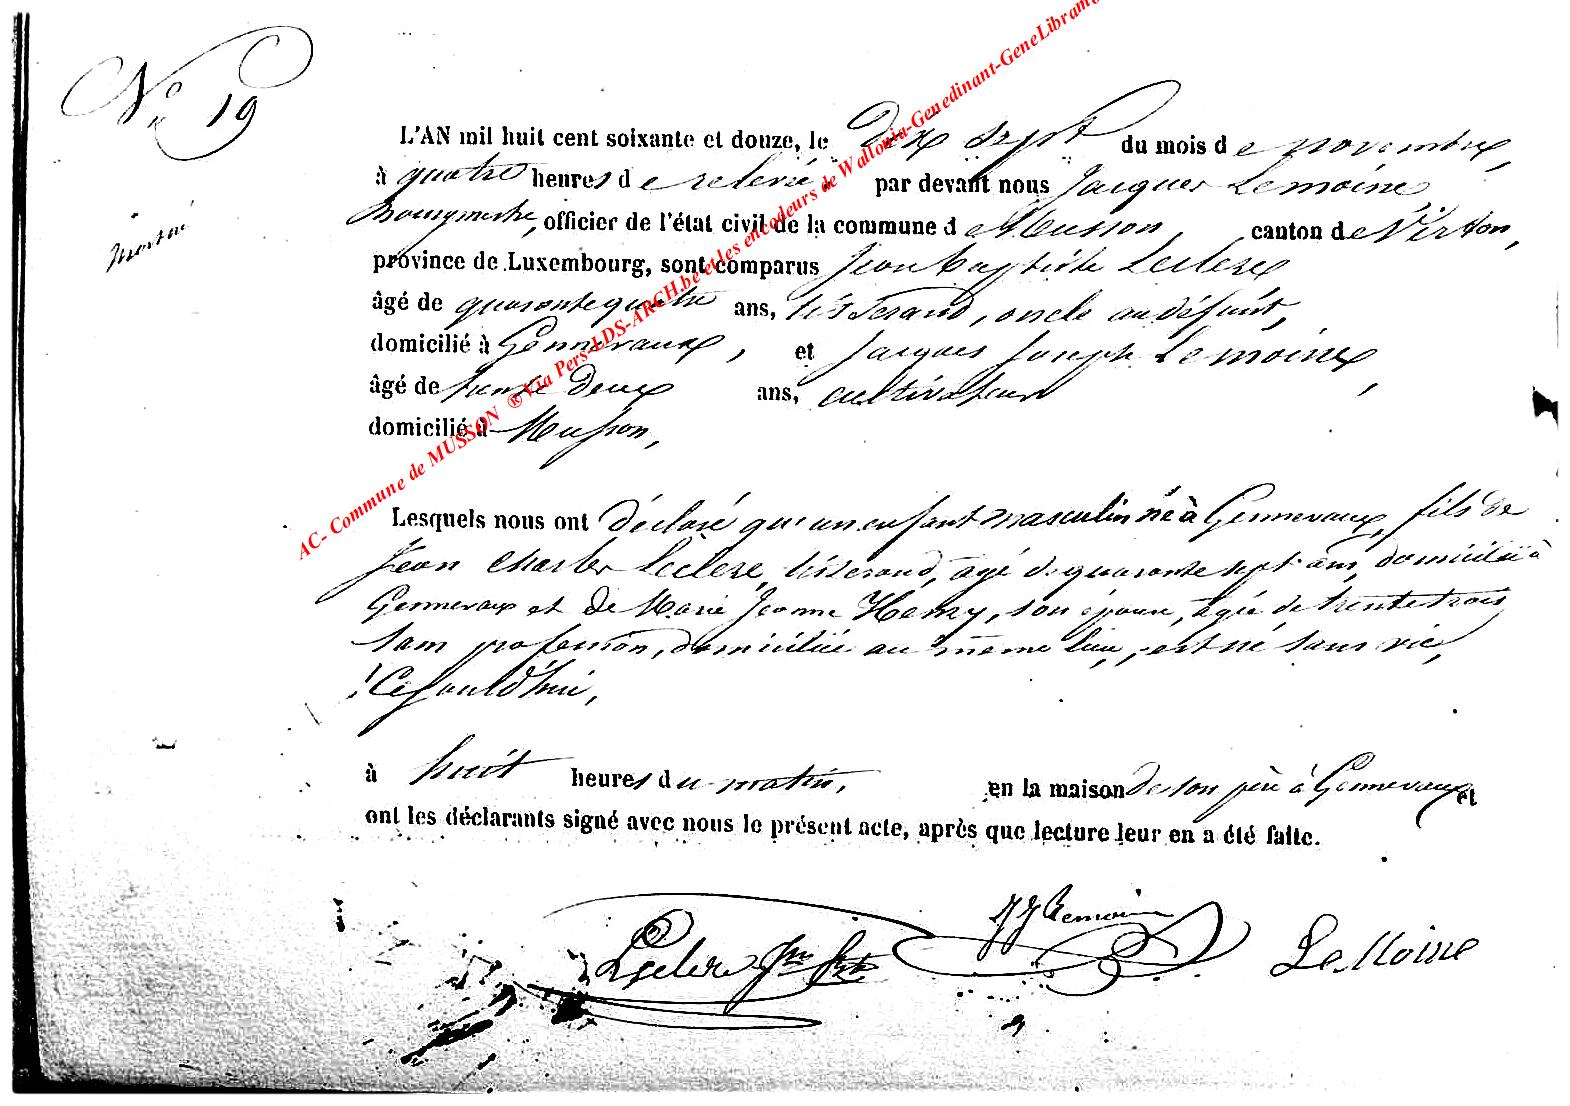 AC- Commune de MUSSON ®Via Pers-LDS-ARCH.be et les encodeurs de Wallonia-Genedinant-GeneLibramo
N° 19
mort né
L'AN mil huit cent soixante et douze, le dix sept du mois de novembre,
à quatre heures de relevée par devant nous Jacques Lemoine,
Bourgmestre, officier de l'état civil de la commune de Musson, canton de Virton,
province de Luxembourg, sont comparus Jean Baptiste Leclere
âgé de quarante quatre ans, tisserand, oncle au défunt,
domicilié à Gennevaux, et Jacques Joseph Lemoine,
âgé de trente deux ans, cultivateur
domicilié à Musson,
Lesquels nous ont déclaré qu'un enfant masculin né à Gennevaux, fils de
Jean Charles Leclere, tisserand, âgé de quarante sept ans, domicilié à
Gennevaux et de Marie Jeanne Henry, son épouse, âgée de trente trois,
sans profession, domiciliée au même lieu, est né sans vie,
Cejourd'hui,
à huit heures du matin, en la maison de son père à Gennevaux et
ont les déclarants signé avec nous le présent acte, après que lecture leur en a été faite.
JJ Lemoine
Leclere Jn Bte LeMoine